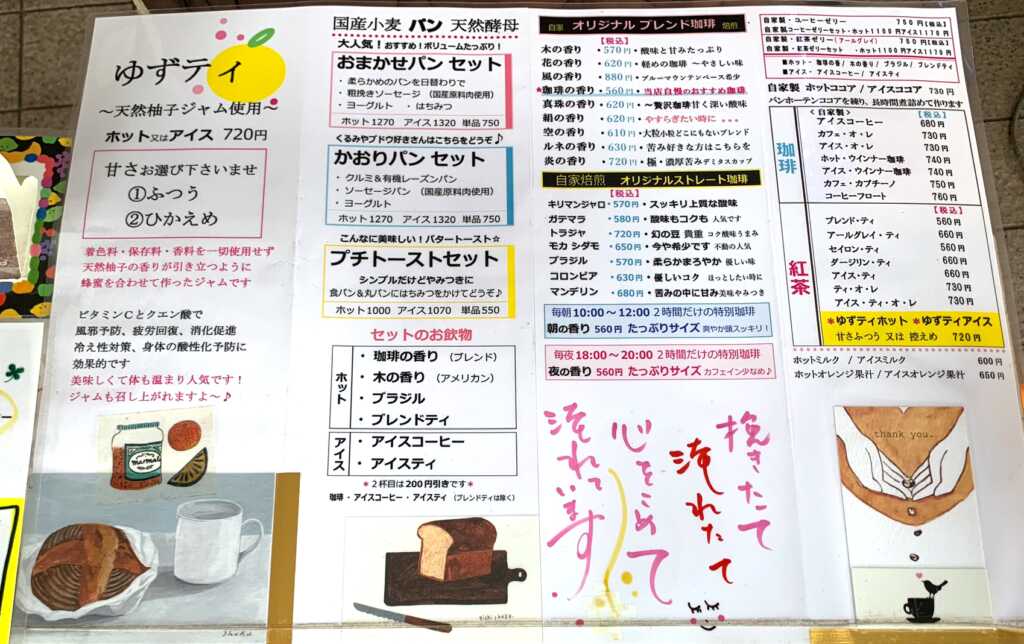 ゆずティ
～天然柚子ジャム使用～
ホット又はアイス 720円
甘さお選び下さいませ
①ふつう
②ひかえめ
着色料・保存料・香料を一切使用せず
天然柚子の香りが引き立つように
蜂蜜を合わせて作ったジャムです
ビタミンCとクエン酸で
風邪予防、疲労回復、消化促進
冷え性対策、身体の酸性化予防に
効果的です
美味しくて体も温まり人気です！
ジャムも召し上がれますよ～♪
国産小麦 パン 天然酵母
大人気！おすすめ！ボリュームたっぷり！
おまかせパン セット
・柔らかめのパンを日替わりで
・粗挽きソーセージ（国産原料肉使用）
・ヨーグルト ・はちみつ
ホット1270 アイス1320 単品 750
くるみやブドウ好きさんはこちらをどうぞ♪
かおりパン セット
・クルミ＆有機レーズンパン
・ソーセージパン（国産原料肉使用）
・ヨーグルト
ホット1270 アイス1320 単品 750
こんなに美味しい！バタートースト☆
プチトーストセット
シンプルだけどやみつきに
食パン＆丸パンにはちみつをかけてどうぞ♪
ホット1000 アイス1070 単品550
セットのお飲物
ホット
・珈琲の香り（ブレンド）
・木の香り（アメリカン）
・ブラジル
・ブレンドティ
アイス
・アイスコーヒー
・アイスティ
＊2杯目は200円引きです＊
珈琲・アイスコーヒー・アイスティ（ブレンドティは除く）
自家 オリジナル ブレンド珈琲 焙煎
【税込】
木の香り・570円・酸味と甘みたっぷり
花の香り・620円・軽めの珈琲 ～やさしい味
風の香り・880円・ブルーマウンテンベース希少
＊珈琲の香り・560円・当店自慢のおすすめ珈琲
真珠の香り・620円・～贅沢珈琲甘く深い酸味
絹の香り・620円・やすらぎたい時に ＊＊＊
空の香り・610円・大粒小粒どこにもないブレンド
ルネの香り・630円・苦み好きな方はこちらを
炎の香り・720円・極・濃厚苦みデミタスカップ
自家焙煎 オリジナルストレート珈琲
【税込】
キリマンジャロ・570円・スッキリ上質な酸味
ガテマラ・580円・酸味もコクも 人気です
トラジャ・720円・幻の豆 貴重 コク酸味うまみ
モカ シダモ・650円・今や希少です 不動の人気
ブラジル・570円・柔らかまろやか 優しい味
コロンビア・630円・優しいコク ほっとしたい時に
マンデリン・680円・苦みの中に甘み美味やみつき
毎朝 10:00～12:00 2時間だけの特別珈琲
朝の香り 560円 たっぷりサイズ 爽やか頭スッキリ！
毎夜 18:00～20:00 2時間だけの特別珈琲
夜の香り 560円 たっぷりサイズ カフェイン少なめ♪
挽きたて
淹れたて
心をこめて
淹れています
自家製・コーヒーゼリー 750円【税込】
自家製コーヒーゼリーセット・ホット1100円アイス1170円
自家製・紅茶ゼリー（アールグレイ） 750円【税込】
自家製・紅茶ゼリーセット・ホット1100円アイス1170円
■ホット・珈琲の香/木の香り/ブラジル/ブレンドティ
■アイス・アイスコーヒー/アイスティ
自家製 ホットココア / アイスココア 730円
バンホーテンココアを練り、長時間煮詰めて作ります
珈琲
＜自家製＞ 【税込】
アイスコーヒー 680円
カフェ・オ・レ 730円
アイス・オ・レ 730円
ホット・ウインナー珈琲 740円
アイス・ウインナー珈琲 740円
カフェ・カプチーノ 750円
コーヒーフロート 760円
紅茶
【税込】
ブレンド・ティ 560円
アールグレイ・ティ 660円
セイロン・ティ 660円
ダージリン・ティ 660円
アイス・ティ 660円
ティ・オ・レ 660円
アイス・ティ・オ・レ 660円
＊ゆずティホット ＊ゆずティアイス
甘さふつう 又は 控えめ 720円
ホットミルク / アイスミルク 600円
ホットオレンジ果汁 / アイスオレンジ果汁 650円
thank you.